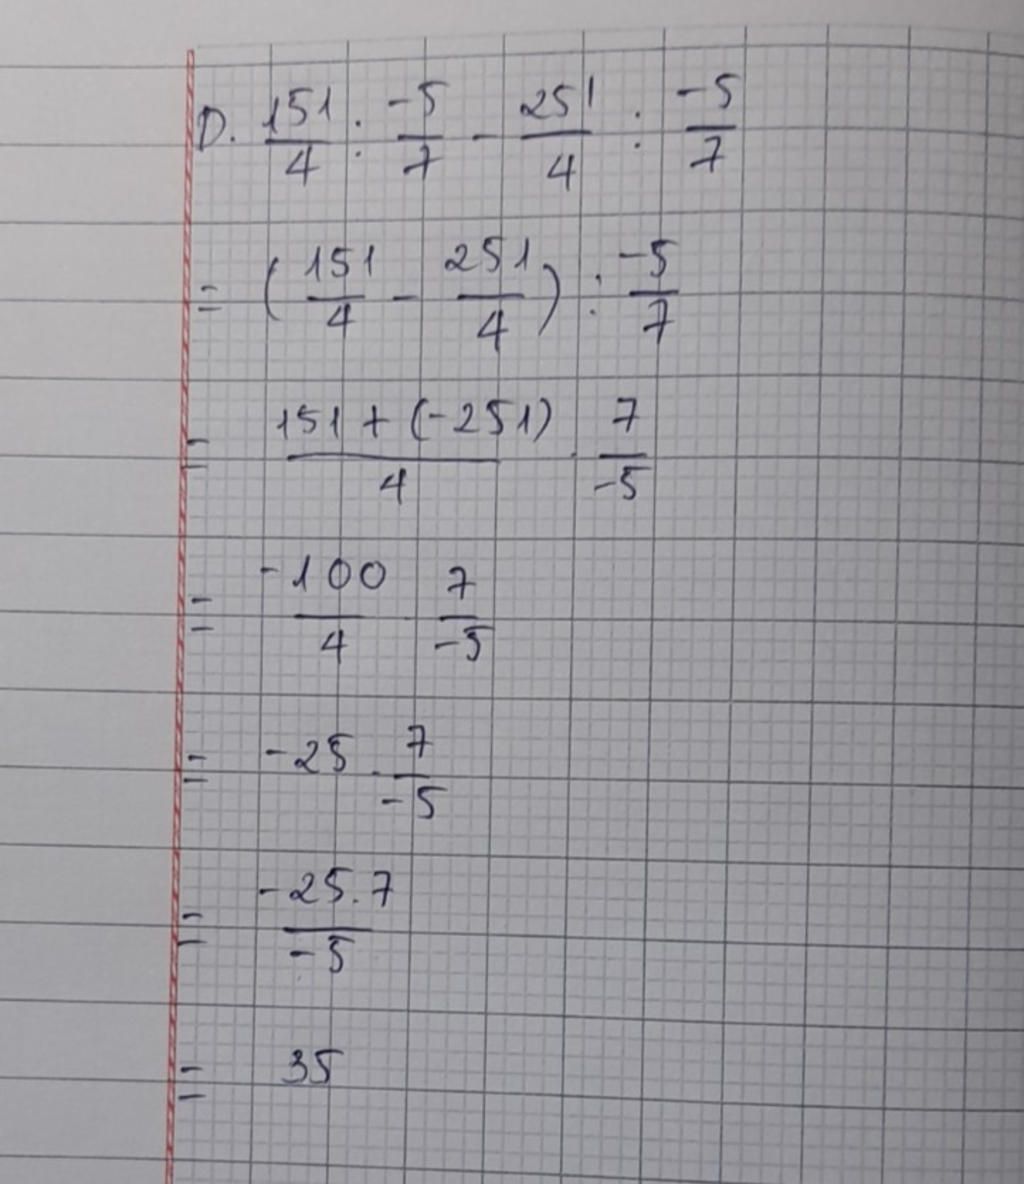 D. 151/4 : -5/7 - 251/4 : -5/7
= (151/4 - 251/4) : -5/7
= 151 + (-251)/4 . 7/-5
= -100/4 . 7/-5
= -25 . 7/-5
= -25.7/-5
= 35